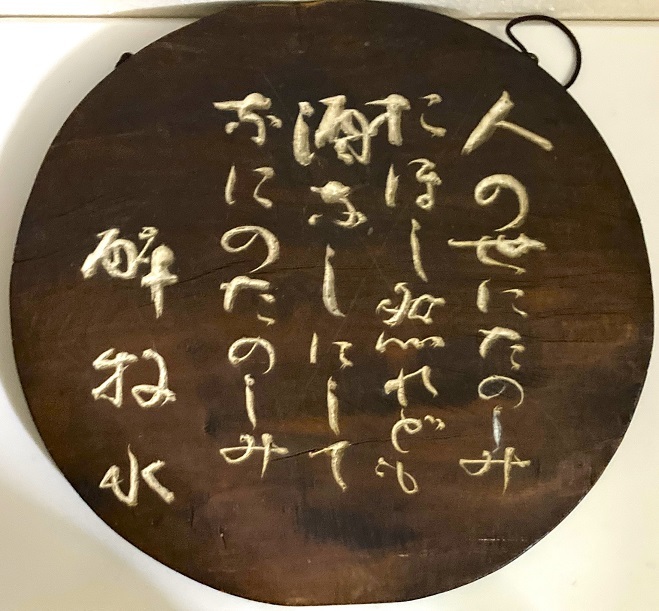 人の世にたのしみ
おほし然れども
酒なしにして
なにのたのしみ
酔牧水